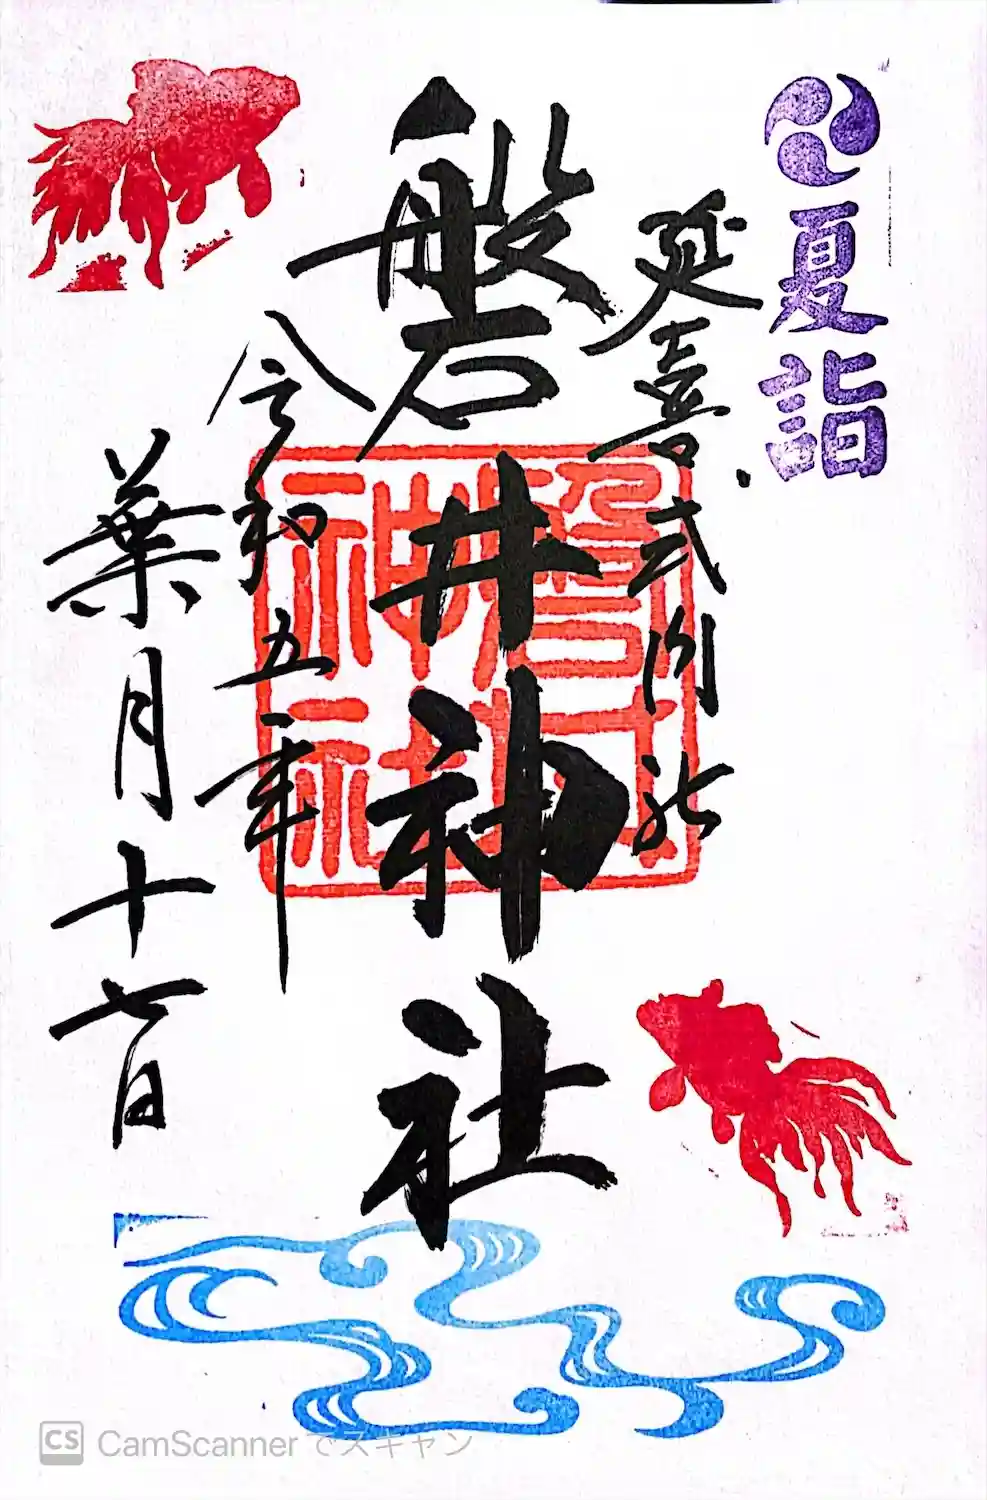 夏詣
延喜式内社
磐井神社
磐井神社
令和五年
葉月十七日
CS CamScannerでスキャン